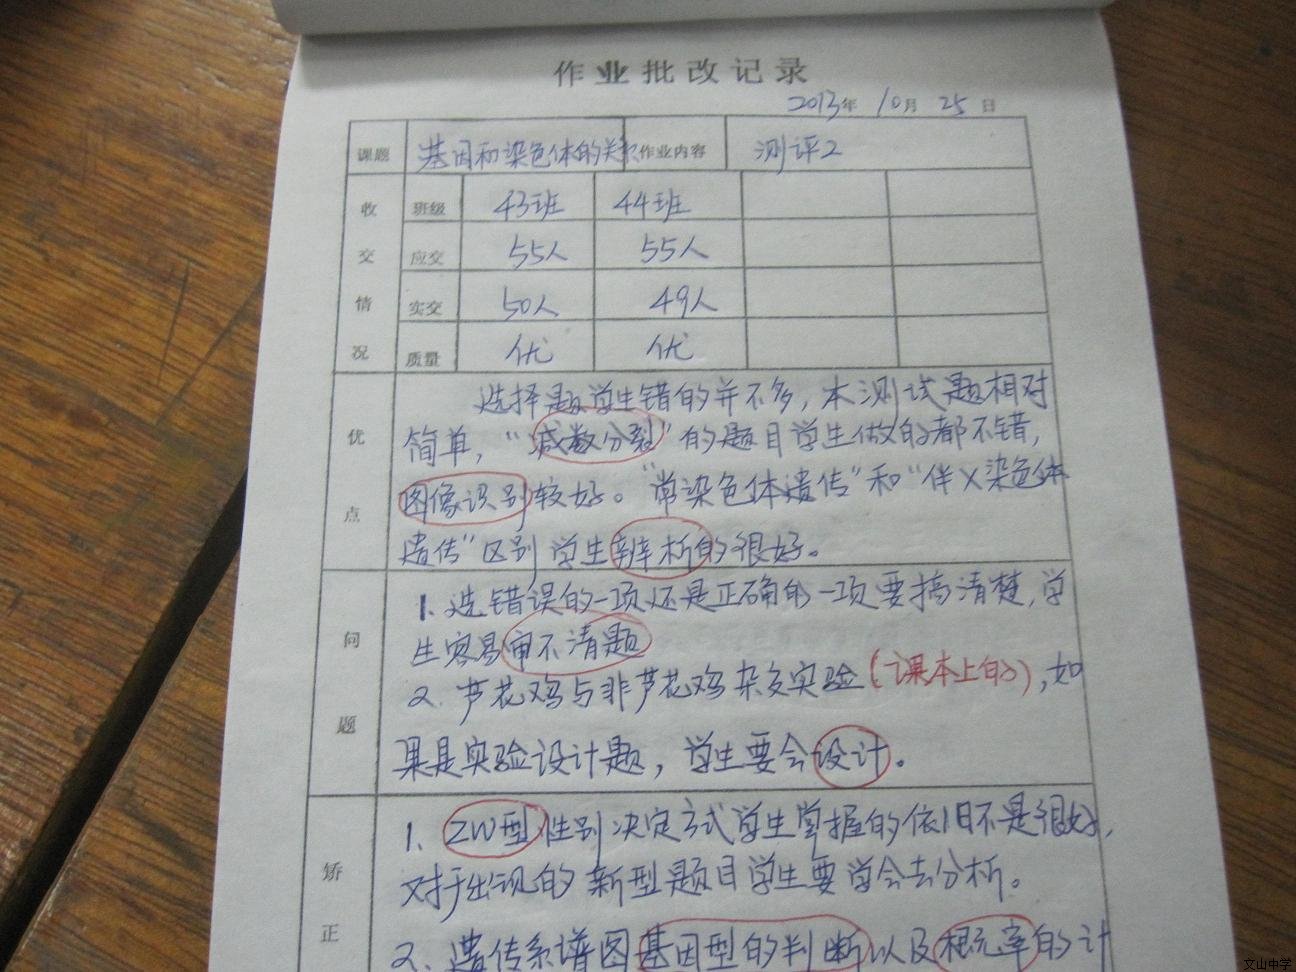 作业批改记录
2013年 10月 25日
课题 基因和染色体的关系 作业内容 测评2
收交情况 班级 43班 44班
应交 55人 55人
实交 50人 49人
质量 优 优
优点
选择题学生错的并不多，本测试题相对
简单，“减数分裂”的题目学生做的都不错，
图像识别较好。“常染色体遗传”和“伴X染色体
遗传”区别学生辨析的很好。
问题
1. 选错误的一项还是正确的一项要搞清楚，学
生容易审不清题
2. 芦花鸡与非芦花鸡杂交实验（课本上的），如
果是实验设计题，学生要会设计。
矫正
1、ZW型性别决定方式学生掌握的依旧不是很好，
对于出现的新型题目学生要学会去分析。
2、遗传系谱图基因型的判断以及概率的计
文山中学